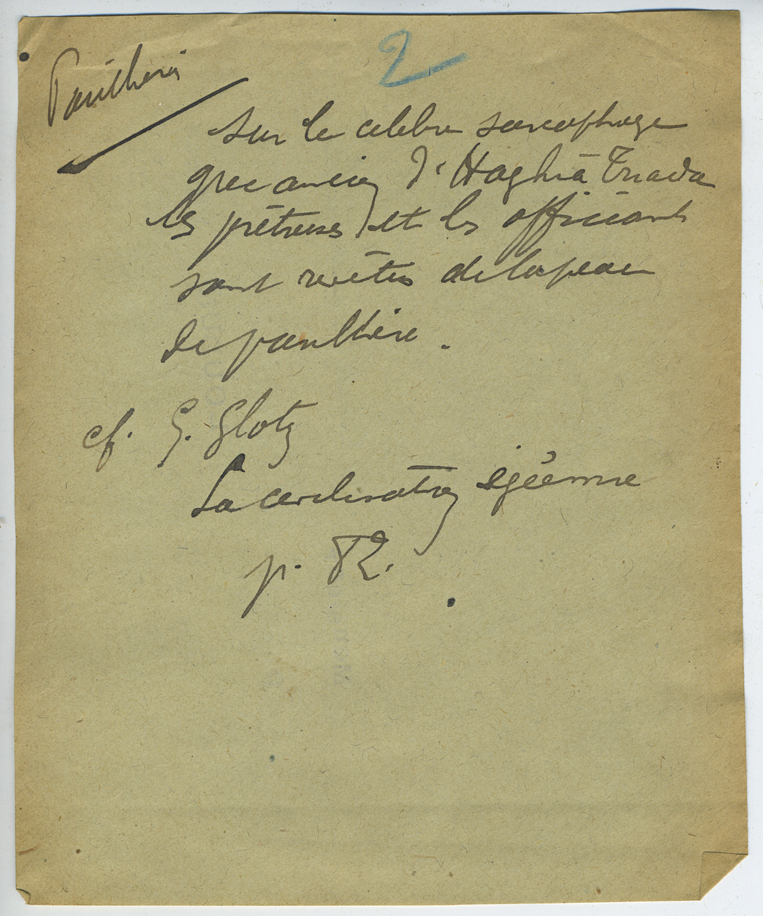 2
Panthère
Sur le célèbre sarcophage
grec ancien d'Haghia Triada
les prêtresses et les officiants
sont revêtus de la peau
de panthère.
cf. G. Glotz
La civilisation égéenne
p. 82.